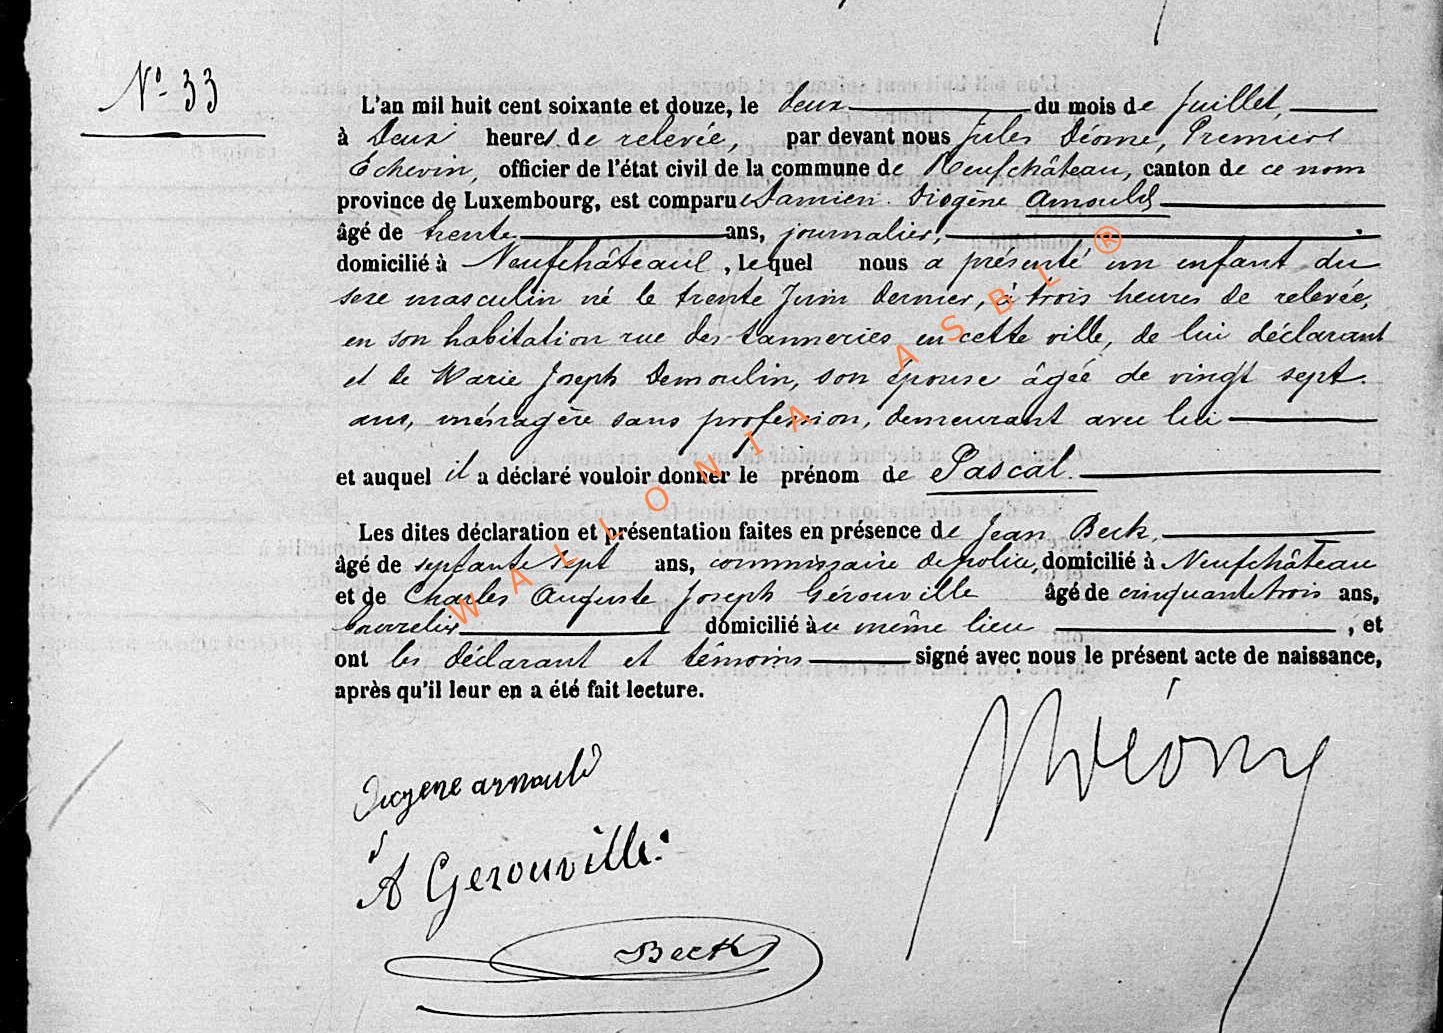 N° 33
L'an mil huit cent soixante et douze, le deux du mois de Juillet,
à Deux heures de relevée, par devant nous Jules Déome, Premier
Echevin, officier de l'état civil de la commune de Neufchâteau, canton de ce nom
province de Luxembourg, est comparu Damien Diogène Arnould
âgé de trente ans, journalier,
domicilié à Neufchâteau, lequel nous a présenté un enfant du
sexe masculin né le trente Juin dernier, à trois heures de relevée,
en son habitation rue des tanneries en cette ville, de lui déclarant
et de Marie Joseph Demoulin, son épouse âgée de vingt sept
ans, ménagère sans profession, demeurant avec lui
et auquel il a déclaré vouloir donner le prénom de Pascal.
Les dites déclaration et présentation faites en présence de Jean Beck,
âgé de septante sept ans, commissaire de police, domicilié à Neufchâteau
et de Charles Auguste Joseph Gérouville âgé de cinquante trois ans,
domicilié au même lieu, et
ont les déclarant et témoins signé avec nous le présent acte de naissance,
après qu'il leur en a été fait lecture.
Diogene arnould
A Gerouville
Beck
Déome
WALLONIA ASBL ®